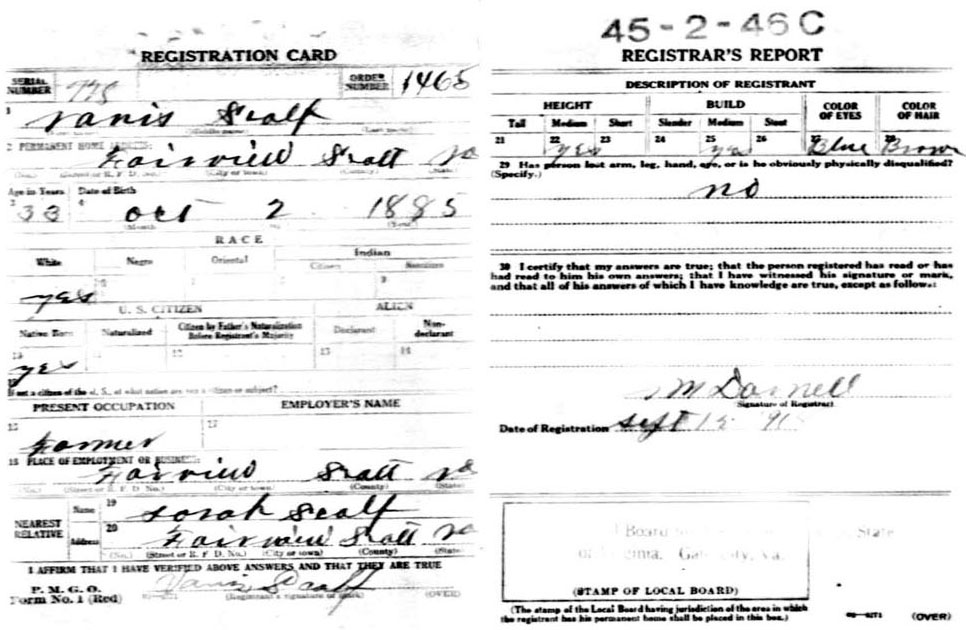 REGISTRATION CARD
SERIAL NUMBER 775 ORDER NUMBER 1465
1 Vanis Scalf
(Middle name) (Last name)
2 PERMANENT HOME ADDRESS:
Fairview Scott Va
(No.) (Street or R. F. D. No.) (City or town) (County) (State)
Age in Years Date of Birth
3 33 4 Oct 2 1885
(Month) (Year)
RACE
White Negro Oriental Indian
Citizen Noncitizen
yes
U. S. CITIZEN ALIEN
Native Born Naturalized Citizen by Father's Naturalization Before Registrant's Majority Declarant Non-declarant
10 11 12 13 14
yes
If not a citizen of the U. S., of what nation are you a citizen or subject?
PRESENT OCCUPATION EMPLOYER'S NAME
16 17
Farmer
18 PLACE OF EMPLOYMENT OR BUSINESS:
Fairview Scott Va
(No.) (Street or R. F. D. No.) (City or town) (County) (State)
NEAREST RELATIVE Name 19 Sarah Scalf
Address 20 Fairview Scott Va
(No.) (Street or R. F. D. No.) (City or town) (County) (State
I AFFIRM THAT I HAVE VERIFIED ABOVE ANSWERS AND THAT THEY ARE TRUE
P. M. G. O.
Form No. 1 (Red) Vanis Scalf
(Registrant's signature or mark) (OVER)
45-2-46 C
REGISTRAR'S REPORT
DESCRIPTION OF REGISTRANT
HEIGHT BUILD COLOR OF EYES COLOR OF HAIR
Tall Medium Short Slender Medium Stout
21 22 yes 23 24 25 yes 26 27 Blue 28 Brown
29 Has person lost arm, leg, hand, eye, or is he obviously physically disqualified?
(Specify.)
no
30 I certify that my answers are true; that the person registered has read or has
had read to him his own answers; that I have witnessed his signature or mark,
and that all of his answers of which I have knowledge are true, except as follows:
M Darnell
Signature of Registrar
Date of Registration Sept 12
Board State
Gate City, Va.
(STAMP OF LOCAL BOARD)
(The stamp of the Local Board having jurisdiction of the area in which
the registrant has his permanent home shall be placed in this box.)
(OVER)